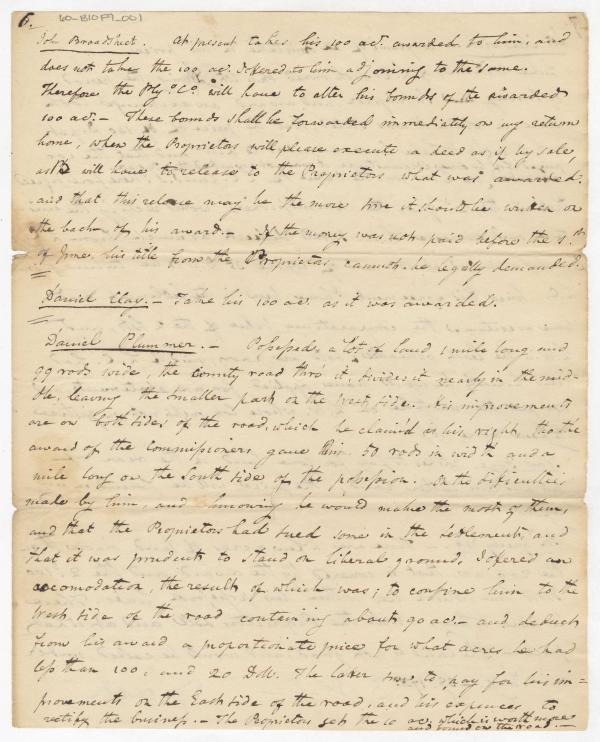 6. 60-B10F7-001
John Broadstreet. At present takes his 100 acs. awarded to him, and
does not take the 100 ac. I offered to him adjoining to the same.
Therefore the Ply. Co. will have to alter his bounds of the awarded
100 ac. — These bounds shall be forwarded immediately on my return
home, when the Proprietors will please execute a deed as if by sale,
as he will have to release to the Proprietors what was awarded.
and that this release may be the more sure it should be written on
the back of his award. — If the money was not paid before the 1.st
of June his title from the Proprietas cannot be legally demanded.
Daniel Clay. — Take his 100 ac. as it was awarded.
Daniel Plummer. — Possessed a lot of land 1 mile long and
99 rods wide, the County road thro' it, divides it nearly in the mid-
dle, leaving the smaller part on the West side. His improvements
are on both sides of the road, which he claimed as his right, tho the
award of the Commissioners gave him 50 rods in width and a
mile long on the South side of the possession. On the difficulties
made by him, and knowing he would make the most of them,
and that the Proprietors had sued some in the settlement, and
that it was prudent to stand on liberal ground, I offered an
accomodation, the result of which was; to confine him to the
West side of the road containing about 90 ac. — and deduct
from his award a proportionate price for what acres he had
less than 100, and 20 Doll. The latter sum to pay for his im=
provements on the East side of the road, and his expences to
rectify the business. — The Proprietors gets the 10 ac. which is worth more
and round on the road.